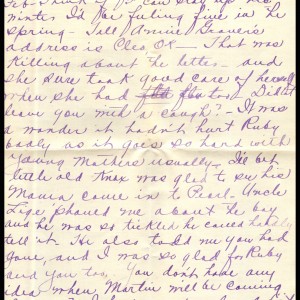 Feb. think if I can stay up the
winter I'd be feeling fine in the
spring - Tell Annie Graver's
address is Cleo, Ok - That was
killing about the letter - and
she sure took good care of herself
when she had flu too - Didn't
leave you with a cough? - It was
a wonder it hadn't hurt Ruby
badly as it goes so hard with
young Mothers usually - I'll bet
little old Knox was glad to see his
Mama come in to Pearl - Uncle
Lige phoned me about the boy
and he was so tickled he could hardly
tell it. He also told me you had
gone, and I was so glad for Ruby
and you too. You don't have any
idea when Martin will be coming